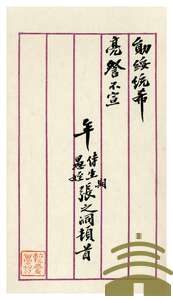 勛綏統希
亮詧不宣
年侍生期
愚姪
張之洞頓首